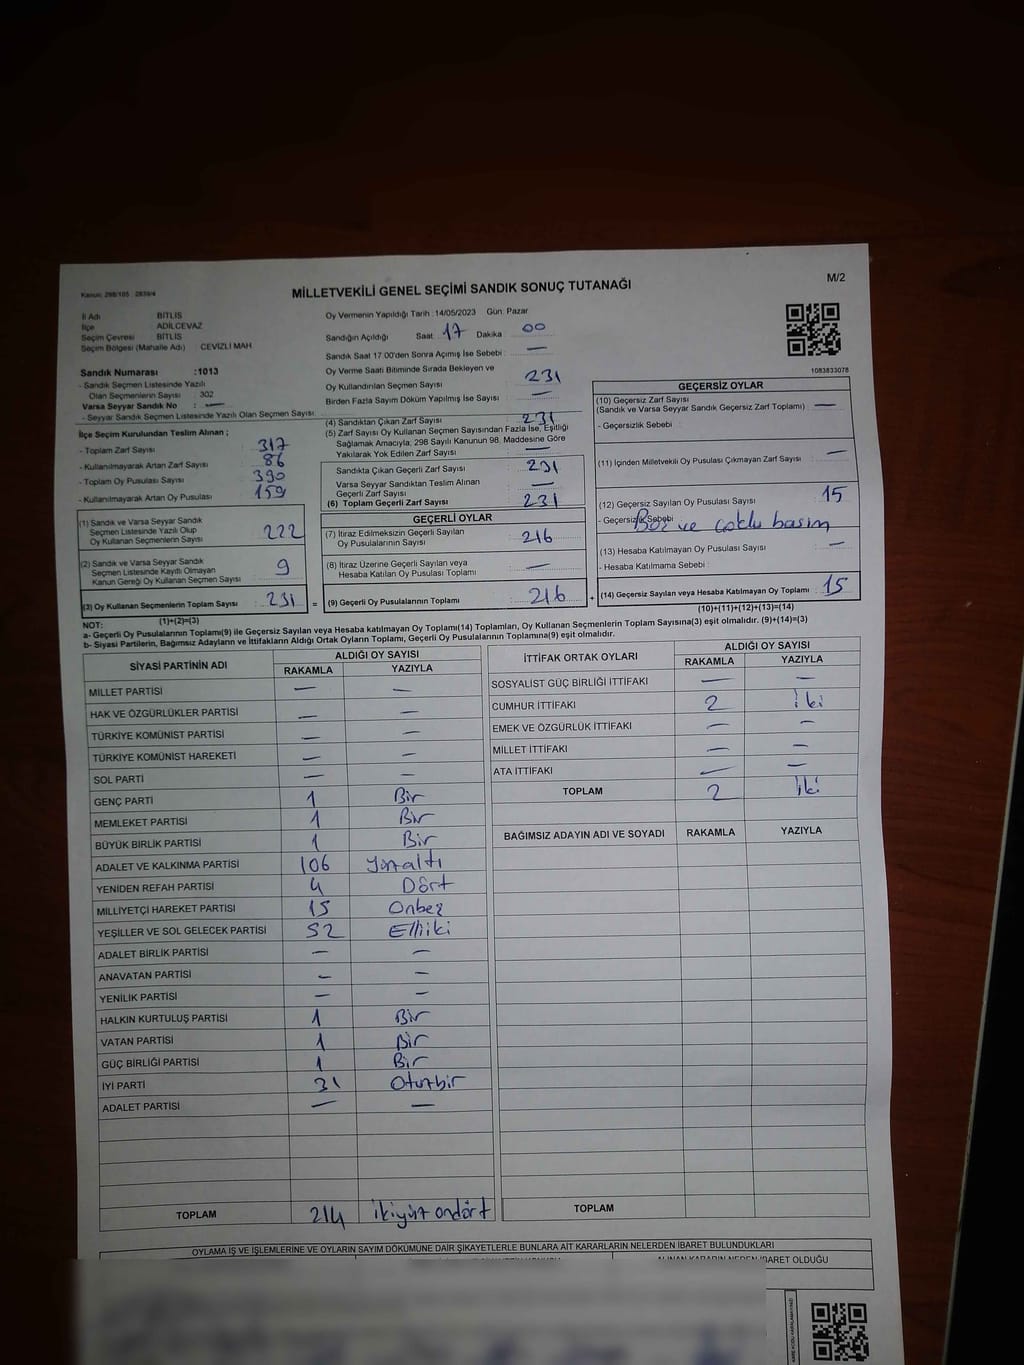 M/2
MİLLETVEKİLİ GENEL SEÇİMİ SANDIK SONUÇ TUTANAĞI
İl Adı BİTLİS
İlçe ADİLCEVAZ
Seçim Çevresi BİTLİS
Seçim Bölgesi (Mahalle Adı) CEVİZLİ MAH
Sandık Numarası :1013
- Sandık Seçmen Listesinde Yazılı
Olan Seçmenlerin Sayısı 302
Varsa Seyyar Sandık No : —
- Seyyar Sandık Seçmen Listesinde Yazılı Olan Seçmen Sayısı
Oy Vermenin Yapıldığı Tarih :14/05/2023 Gün: Pazar
Sandığın Açıldığı Saat 17 Dakika 00
Sandık Saat 17.00'den Sonra Açımış İse Sebebi : —
Oy Verme Saati Bitiminde Sırada Bekleyen ve
Oy Kullandırılan Seçmen Sayısı : 231
Birden Fazla Sayım Döküm Yapılmış İse Sayısı : —
1083833078
İlçe Seçim Kurulundan Teslim Alınan ;
- Toplam Zarf Sayısı : 317
- Kullanılmayarak Artan Zarf Sayısı : 86
- Toplam Oy Pusulası Sayısı : 390
- Kullanılmayarak Artan Oy Pusulası : 159
(1) Sandık ve Varsa Seyyar Sandık
Seçmen Listesinde Yazılı Olup
Oy Kullanan Seçmenlerin Sayısı : 222
(2) Sandık ve Varsa Seyyar Sandık
Seçmen Listesinde Kayıtlı Olmayan
Kanun Gereği Oy Kullanan Seçmen Sayısı : 9
(3) Oy Kullanan Seçmenlerin Toplam Sayısı : 231 =
(1)+(2)=(3)
(4) Sandıktan Çıkan Zarf Sayısı : 231
(5) Zarf Sayısı Oy Kullanan Seçmen Sayısından Fazla İse, Eşitliği
Sağlamak Amacıyla, 298 Sayılı Kanunun 98. Maddesine Göre
Yakılarak Yok Edilen Zarf Sayısı : —
Sandıkta Çıkan Geçerli Zarf Sayısı : 231
Varsa Seyyar Sandıktan Teslim Alınan
Geçerli Zarf Sayısı : —
(6) Toplam Geçerli Zarf Sayısı : 231
GEÇERLİ OYLAR
(7) İtiraz Edilmeksizin Geçerli Sayılan
Oy Pusulalarının Sayısı : 216
(8) İtiraz Üzerine Geçerli Sayılan veya
Hesaba Katılan Oy Pusulası Toplamı : —
(9) Geçerli Oy Pusulalarının Toplamı : 216 +
GEÇERSİZ OYLAR
(10) Geçersiz Zarf Sayısı
(Sandık ve Varsa Seyyar Sandık Geçersiz Zarf Toplamı) : —
- Geçersizlik Sebebi :
(11) İçinden Milletvekili Oy Pusulası Çıkmayan Zarf Sayısı : —
(12) Geçersiz Sayılan Oy Pusulası Sayısı : 15
- Geçersizlik Sebebi : Boş ve çoklu basım
(13) Hesaba Katılmayan Oy Pusulası Sayısı : —
- Hesaba Katılmama Sebebi :
(14) Geçersiz Sayılan veya Hesaba Katılmayan Oy Toplamı : 15
(10)+(11)+(12)+(13)=(14)
NOT:
a- Geçerli Oy Pusulalarının Toplamı(9) ile Geçersiz Sayılan veya Hesaba katılmayan Oy Toplamı(14) Toplamları, Oy Kullanan Seçmenlerin Toplam Sayısına(3) eşit olmalıdır. (9)+(14)=(3)
b- Siyasi Partilerin, Bağımsız Adayların ve İttifakların Aldığı Ortak Oyların Toplamı, Geçerli Oy Pusulalarının Toplamına(9) eşit olmalıdır.
SİYASİ PARTİNİN ADI ALDIĞI OY SAYISI
RAKAMLA YAZIYLA
MİLLET PARTİSİ — —
HAK VE ÖZGÜRLÜKLER PARTİSİ — —
TÜRKİYE KOMÜNİST PARTİSİ — —
TÜRKİYE KOMÜNİST HAREKETİ — —
SOL PARTİ — —
GENÇ PARTİ 1 Bir
MEMLEKET PARTİSİ 1 Bir
BÜYÜK BİRLİK PARTİSİ 1 Bir
ADALET VE KALKINMA PARTİSİ 106 Yüzaltı
YENİDEN REFAH PARTİSİ 4 Dört
MİLLİYETÇİ HAREKET PARTİSİ 15 Onbeş
YEŞİLLER VE SOL GELECEK PARTİSİ 52 Elliiki
ADALET BİRLİK PARTİSİ — —
ANAVATAN PARTİSİ — —
YENİLİK PARTİSİ — —
HALKIN KURTULUŞ PARTİSİ 1 Bir
VATAN PARTİSİ 1 Bir
GÜÇ BİRLİĞİ PARTİSİ 1 Bir
İYİ PARTİ 31 Otuzbir
ADALET PARTİSİ — —
TOPLAM 214 ikiyüz ondört
İTTİFAK ORTAK OYLARI ALDIĞI OY SAYISI
RAKAMLA YAZIYLA
SOSYALİST GÜÇ BİRLİĞİ İTTİFAKI — —
CUMHUR İTTİFAKI 2 iki
EMEK VE ÖZGÜRLÜK İTTİFAKI — —
MİLLET İTTİFAKI — —
ATA İTTİFAKI — —
TOPLAM 2 iki
BAĞIMSIZ ADAYIN ADI VE SOYADI RAKAMLA YAZIYLA
TOPLAM
OYLAMA İŞ VE İŞLEMLERİNE VE OYLARIN SAYIM DÖKÜMÜNE DAİR ŞİKAYETLERLE BUNLARA AİT KARARLARIN NELERDEN İBARET BULUNDUKLARI
ALINAN KARARIN NEDEN İBARET OLDUĞU